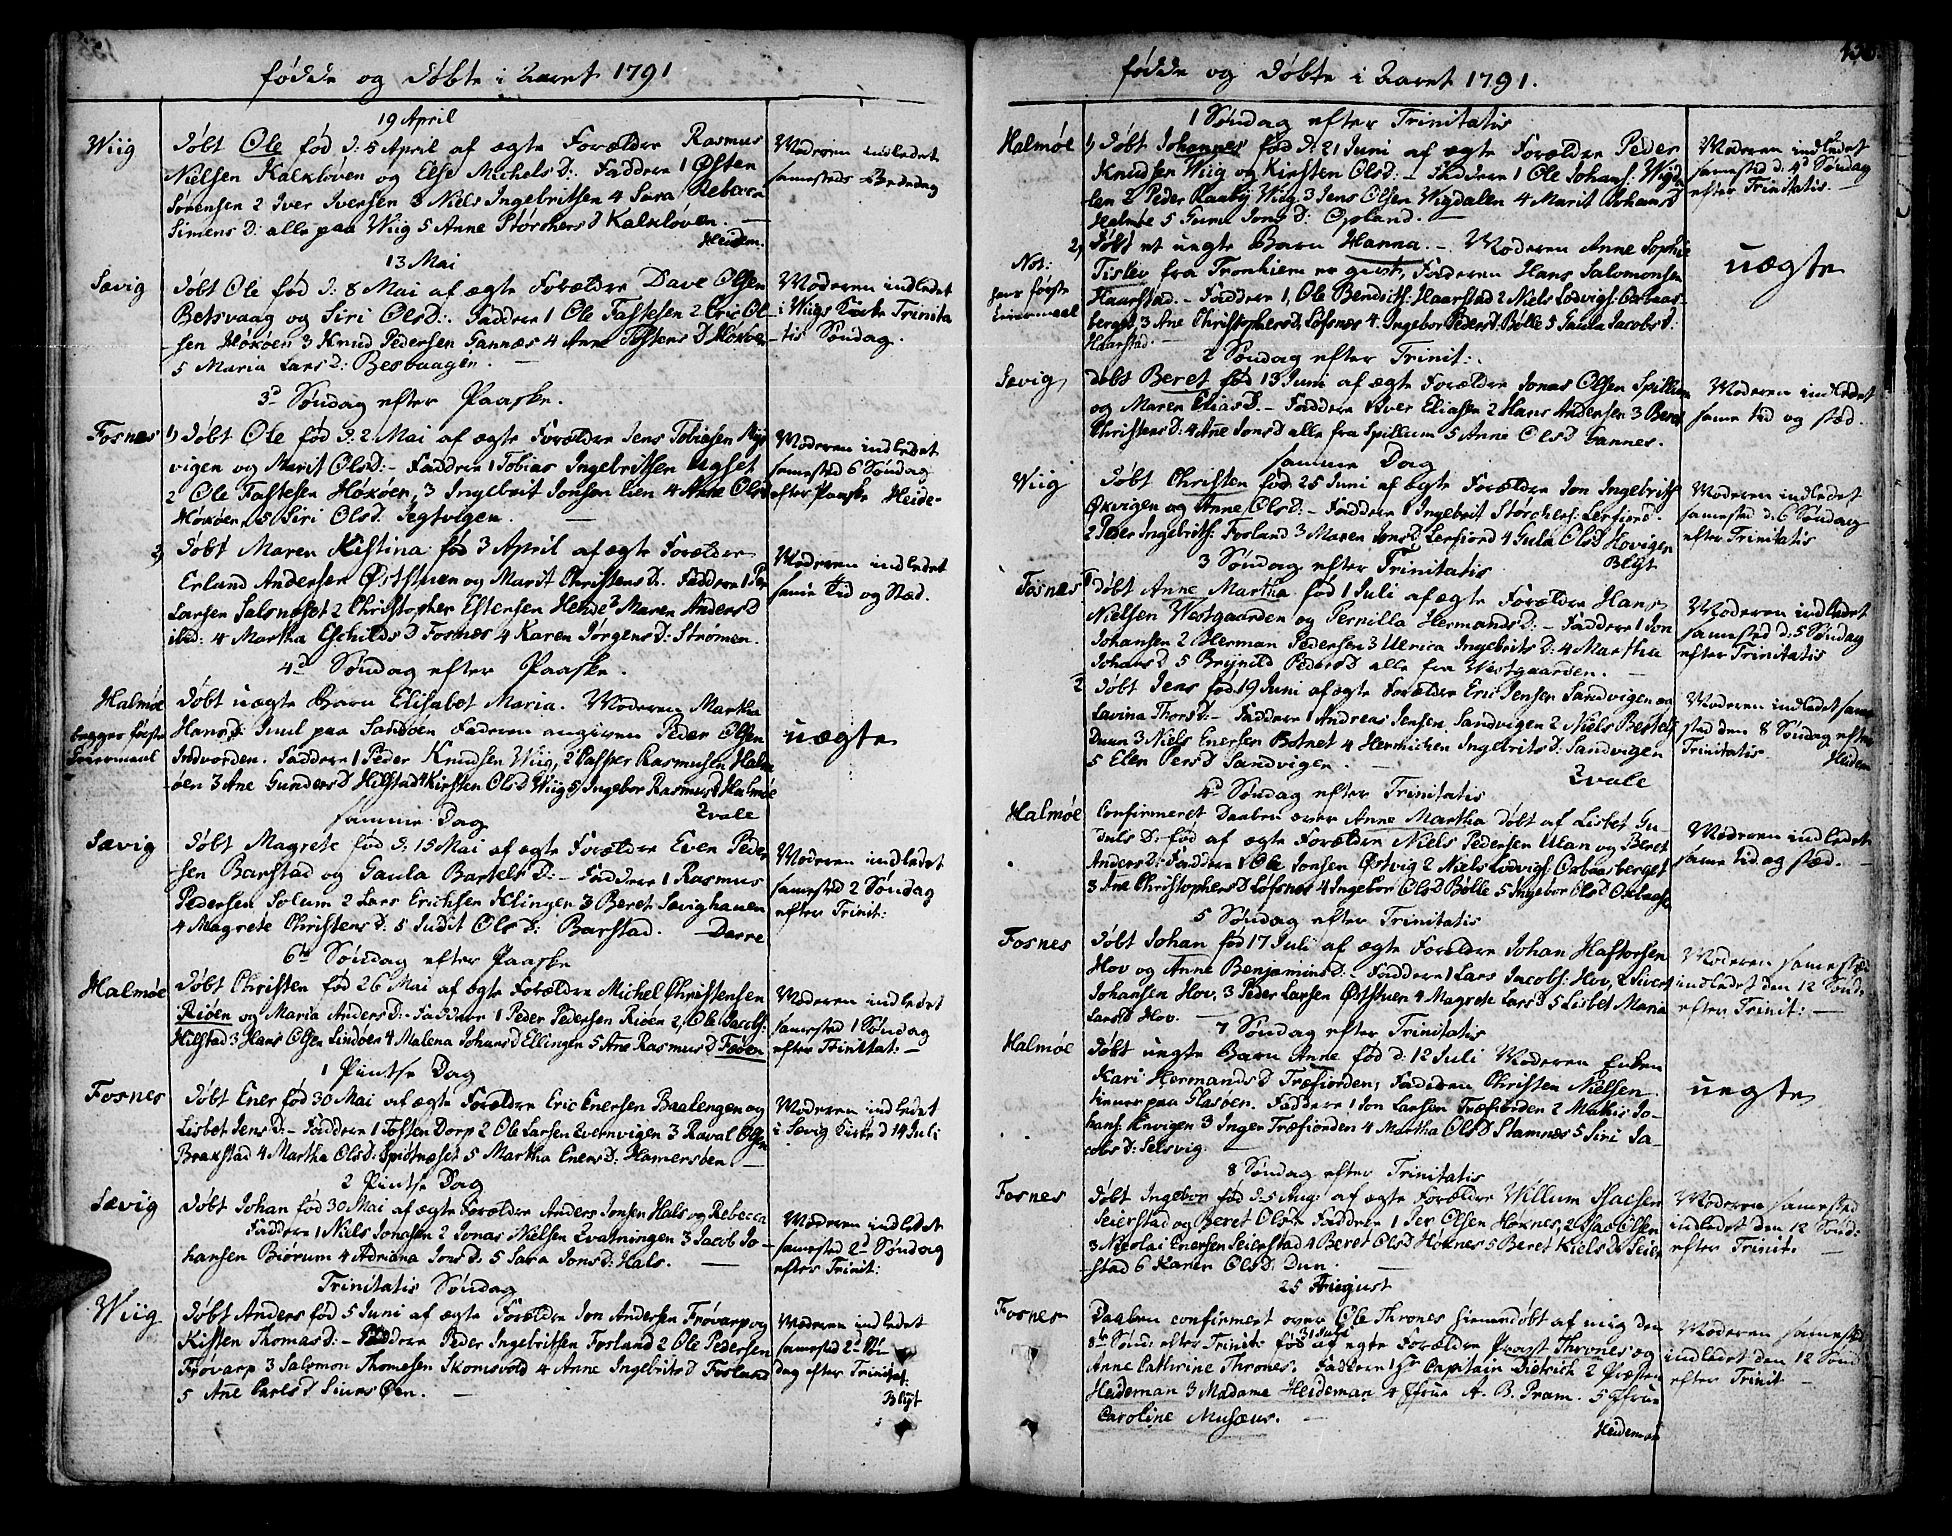 fødde og døbte i Aaret 1791
19 April
Wiig
døbt Ole fød d: 5 April af ægte Forældre Rasmus
Nielsen Kalkløven og Else MichelsD: Faddere 1 Østen
Sørensen 2 Iver Iversen 3 Niels Ingebritsen 4 Sara Rebecca
Simens D: alle paa Wiig 5 Anne Størchers D Kalkløven. —
Heidem.
Moderen indledet
samesteds Bededag
13 Mai
Sævig
døbt Ole fød d: 8 Mai af ægte Forældre Dave Olsen
Betsvaag og Siri OlsD: Faddere 1 Ole Fastesen 2 Eric Ol-
sen Høkøen 3 Knud Pedersen Gannæs 4 Anne Tostens D Høkøen
5 Maria Lars D: Besvaagen. —
Moderen indledet
i Wiigs Kirke Trinita
tis Søndag.
3d Søndag efter Paaske.
Fosnes
1) døbt Ole fød d. 2 Mai af ægte Forældre Jens Tobiasen
vigen og Marit OlsD:- Faddere 1 Tobias Ingebritsen Ugset
2 Ole Fastesen Høkøen, 3 Ingebrit Jonsen Lien 4 Anne OlsD
Høkøen, 5 Siri OlsD. Segtvigen. —
Moderen indledet
samested 6 Søndag
efter Paaske Heide-
2, døbt Maren Kistina fød 3 April af ægte Forældre
Erland Andersen Øststuen og Marit ChristensD. Faddere 1 Per
Larsen Salsneset 2 Christopher Estersen Hende 3 Maren AndersD
ibid: 4 Martha Eschilds D Fosnæs 4 Karen JørgensD: Strømen.
Moderen indledet
same Tid og Stæd.
4d Søndag efter Paaske.
Halmøe
begges første
Leiermaal
døbt uægte Barn Elisabet Maria. Moderen Martha
HansD: Juul paa Sandøen Faderen angiven Peder Olsen
Indvorden. Faddere 1 Peder Knudsen Wiig, 2 Casper Rasmusen Halm
øen 3 Ane GundersD Hilstad 4 Kirsten OlsD Wiig 5 Ingebor RasmusD Halmøe
Zvale
uægte
samme Dag
Sævig
døbt Magrete fød d. 15 Mai af ægte Forældre Even Peder
sen Barstad og Gaula BartelsD:- Faddere 1 Rasmus
Pedersen Solum 2 Lars Erichsen Klingen 3 Beret Sævighauen
4 Magrete ChristensD: 5 Judit OlsD: Barstad. Darre
Moderen indledet
samested 2 Søndag
efter Trinit:
6te Søndag efter Paaske
Halmøe
døbt Christen fød 26 Mai af ægte Forældre Michel Christensen
Riøen og Maria AndersD:- Faddere 1 Peder Pedersen Riøen 2, Ole Jacobs:
Hilstad 3 Hans Olsen Lindøen 4 Malena JohansD Ellingen 5 Ane RasmusD Fæøen
Moderen indledet
samested 1 Søndag
efter Trinitat: —
1 Pintse Dag
Fosnes
døbt Ener fød 30 Mai af ægte Forældre Eric Enersen Baalengen og
Lisbet JensD:- Faddere 1 Tosten Dorp 2 Ole Larsen Zvernvigen 3 Raval Olsen
Brakstad 4 Martha OlsD: Spitnæset 5 Martha EnersD: Hamersøen. —
Moderen indledet
i Sævig Kirke d 14 Juli
2 Pintse Dag
Sævig
døbt Johan fød 30 Mai af ægte Forældre Anders Jonsen Hals og Rebecca
Faddere 1 Niels Jonasen 2 Jonas Nielsen Zvatningen 3 Jacob Jo-
hansen Biørum 4 Adriana JonsD. 5 Sara JonsD: Hals. —
Moderen indledet
samested 2d Søndag
efter Trinit:
Trinitatis Søndag
Wiig
døbt Anders fød 5 Juni af ægte Forældre Jon Andersen Frøvarp og
Kisten ThomasD:- Faddere Peder Ingebritsen Fosland 2 Ole Pedersen
Frøvarp 3 Salomon Thomesen Skomsvold 4 Anne IngebritsD Fosland
5 Ane CarlsD Linns Øen. —
Moderen indledet
samested 2d
dag efter Trinitat:
Blyt
fødde og døbte i Aaret 1791.
1 Søndag efter Trinitatis
Halmøe
1) døbt Johannes fød d. 21 Juni af ægte Forældre Peder
Knudsen Wiig og Kirsten OlsD:- Faddere 1 Ole Johans: Wigda
len 2 Peder Raaby Wiig 3 Jens Olsen Wigdalen 4 Marit JohansD
Halmøe 5 Guru JonsD: Opland. —
Moderen indledet
samested d. 4d Søndag
efter Trinitatis —
Not:
hans første
Leiermaal
2, døbt et uægte Barn Hanna. - Moderen Anne Sophie
Tisløv fra Tronhiem er gift, Faderen Hans Salomonsen
Haarstad. - Faddere 1, Ole Bendits: Haarstad 2 Niels Lodvigs: Oxbaas-
berget, 3 Ane ChristophersD, Løfsnæs 4. Ingebor PedersD. Bølle 5 Gaula JacobsD:
Haarstad. —
uægte
2 Søndag efter Trinit:
Sævig
døbt Beret fød 13 Juni af ægte Forældre Jonas Olsen Spillum
og Maren EliasD. - Faddere 1 Iver Eliasen 2 Hans Andersen 3 Beret
ChristensD: 4 Ane JonsD alle fra Spillum 5 Anne OlsD Gannes.
Moderen indledet
same tid og stæd.
samme Dag
Wiig
døbt Christen fød 25 Juni af ægte Forældre Jon Ingebrits:
Økvigen og Anne OlsD:- Faddere 1 Ingebrit Størchers: Lerfiord.
2 Peder Ingebrits: Fosland 3 Maren JonsD Lerfiord 4 Gula OlsD Hovigen
Blyt
Moderen indledet
samested d. 6 Søndag
efter Trinitatis
3 Søndag efter Trinitatis
Fosnæs
1 døbt Anne Martha fød 1 Juli af ægte Forældre Hans
Nielsen Westgaarden og Pernilla HermandsD:- Faddere 1 Jon
Johansen 2 Herman Pedersen 3 Ulrica IngebritsD: 4 Martha
JohansD 5 Brynild PedersD alle fra Westgaarden. —
Moderen indledet
samested d: 5 Søndag
efter Trinitatis
2 døbt Jens fød 19 Juni af ægte Forældre Eric Jensen Sandvigen og
Lavina ThorsD:- Faddere 1 Andreas Jensen Sandvigen 2 Niels
Duun 3 Niels Enersen Botnet 4 Hermichen IngebritsD: Sandvigen
5 Elen PersD Sandvigen. —
Zvale
Moderen indledet same
sted den 8 Søndag efter
Trinitatis. Heidem
4d Søndag efter Trinitatis
Halmøe
Confirmeret Daaben over Anne Martha døbt af Lisbet Gu-
duls D: fød af ægte Forældre Niels Pedersen Ulan og Beret
AndersD: Faddere 1 Ole Jonsen Østvig 2 Niels Lodvigs: Oxbaasberget
3 Ane ChristophersD Løfsnæs 4 Ingebor OlsD Bølle 5 Ingebor OlsD Oxbaasb.
Moderen indledet
same tid og stæd. —
5 Søndag efter Trinitatis
Fosnes
døbt Johan fød 17 Juli af ægte Forældre Johan Haftorsen
Hov og Anne BenjaminsD.- Faddere 1 Lars Jacobs: Hov, 2 Sivert
Johansen Hov, 3 Peder Larsen Øststuen 4 Magrete LarsD 5 Lisbet Maria
LarsD Hov. —
Moderen samested
indledet den 12 Sønd:
efter Trinit: —
7 Søndag efter Trinitatis
Halmøe
døbt uægte Barn Anne fød d: 12 Juli Moderen Enken
Kari HermandsD Træfiorden, Faderen Christen Nielsen
tiener paa Glasøen. Faddere 1 Jon Larsen Træfiorden 2 Mathis Jo-
hans: Envigen 3 Inger Træfiorden 4 Martha OlsD Stamnæs 5 Siri Ja-
cobsD: Selsvig. —
uegte
8 Søndag efter Trinitatis
Fosnes
døbt Ingebor fød d. 5 Aug: af ægte Forældre Willum Isacsen
Seierstad og Beret OlsD: Faddere 1 Per Olsen Høknes, 2 Isac Olsen
3 Nicolai Enersen Seierstad 4 Beret OlsD Høknes 5 Beret KielsD Seier
stad 6 Karen OlsD: Dun. —
Moderen samested
indledet den 12 Sønd:
efter Trinit. —
25 August
Fosnes
Daaben confirmert over Ole Thrones hiemmedøbt af mig den
8de Sønd: efter Trinit: fød 31 Juli af ægte Forældre Provst Thrones og
Anne Cathrine Thrones. Faddere 1 Hr Capitain Dietrich 2 Præsten
Heideman 3 Madame Heideman 4 Jfrue A. B. Pram. 5 Jfrue
Caroline Musæus. —
Heideman
Moderen samested
indledet den 12 Sønd
efter Trinit —